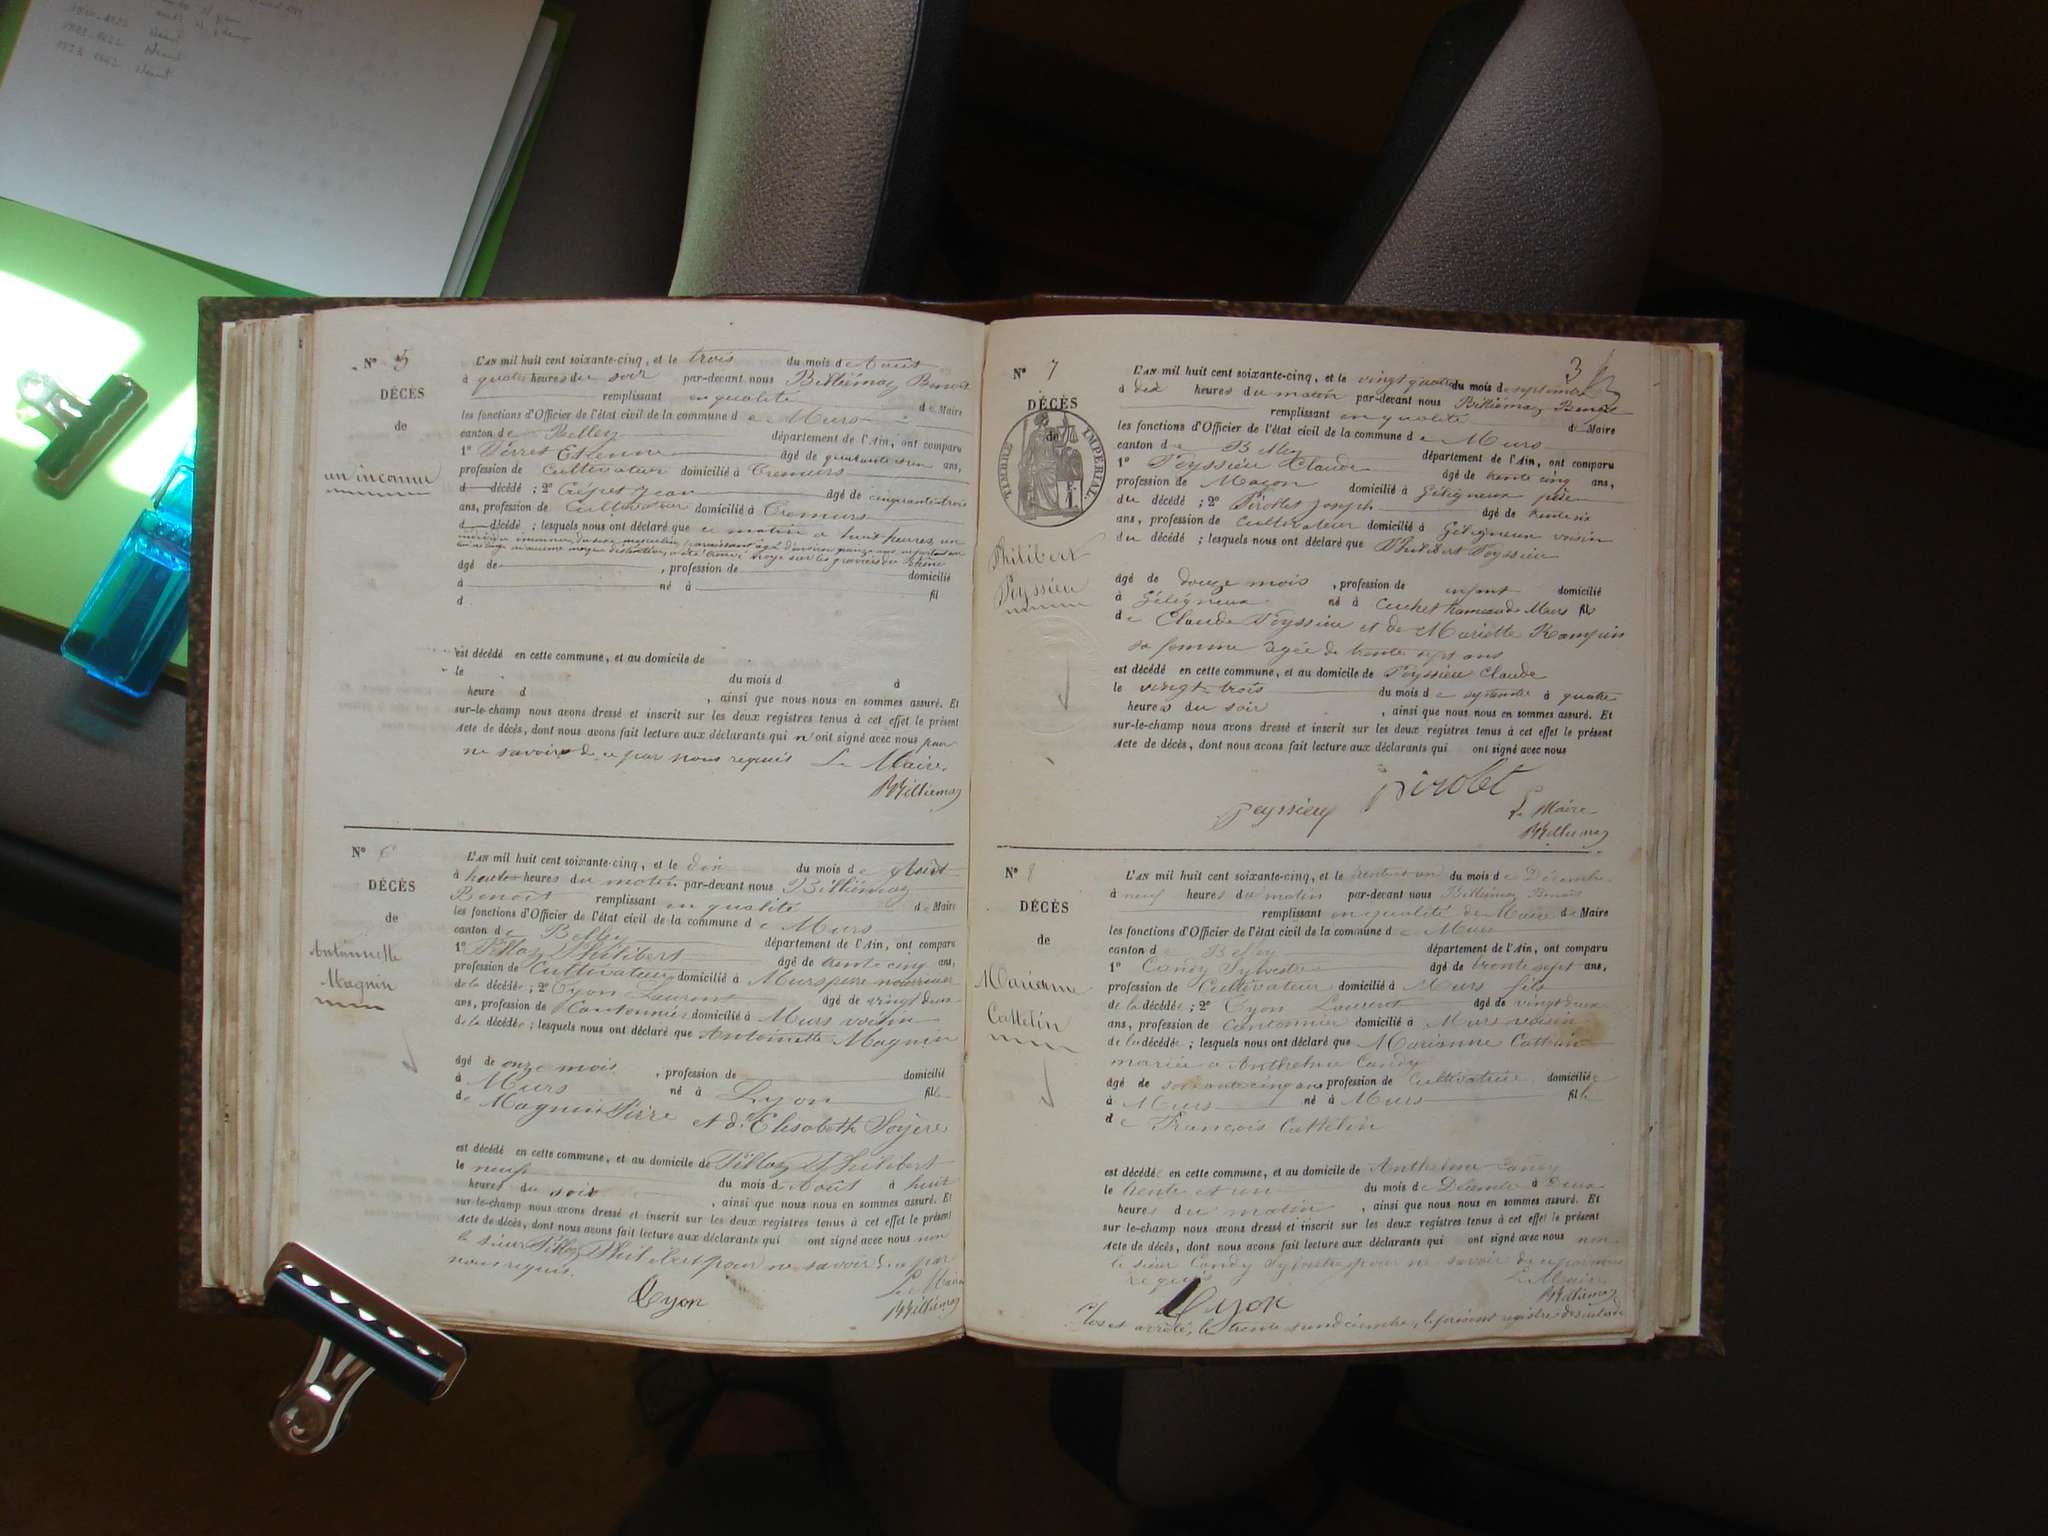 1822
N° 5
DÉCÈS
de
un inconnu
L'AN mil huit cent soixante-cinq, et le trois du mois de Août
à quatre heures du soir par-devant nous Billiémaz Benoit
remplissant en qualité de Maire
les fonctions d'Officier de l'état civil de la commune de Murs
canton de Belley département de l'Ain, ont comparu
1° Pirret Etienne âgé de quarante ans,
profession de Cultivateur domicilié à Cremurs
d décédé ; 2° Crépet Jean âgé de cinquante trois
ans, profession de Cultivateur domicilié à Cremurs
d décédé ; lesquels nous ont déclaré que ce matin à huit heures, un
individu inconnu, du sexe masculin, paraissant âgé d'environ quinze ans,
a été trouvé noyé sur les graviers du Rhône
âgé de , profession de domicilié
à né à fil
d
est décédé en cette commune, et au domicile de
le du mois d à
heure d , ainsi que nous nous en sommes assuré. Et
sur-le-champ nous avons dressé et inscrit sur les deux registres tenus à cet effet le présent
Acte de décès, dont nous avons fait lecture aux déclarants qui n'ont signé avec nous pour
ne savoir de ce par nous requis Le Maire
BBilliemaz
N° 6
DÉCÈS
de
Antoinette
Magnin
L'AN mil huit cent soixante-cinq, et le dix du mois de Août
à heures du matin par-devant nous Billiémaz
Benoit remplissant en qualité de Maire
les fonctions d'Officier de l'état civil de la commune de Murs
canton de Belley département de l'Ain, ont comparu
1° Pilloz Philibert âgé de trente cinq ans,
profession de Cultivateur domicilié à Murs père nourricier
de la décédée ; 2° Cyon Laurent âgé de vingt deux
ans, profession de Cantonnier domicilié à Murs voisin
de la décédée ; lesquels nous ont déclaré que Antoinette Magnin
âgé de onze mois , profession de domicilié
à Murs né à Lyon fille
de Magnin Pierre et d'Elisabeth Soyère
est décédé en cette commune, et au domicile de Pilloz Philibert
le neuf du mois d'Août à huit
heures du soir , ainsi que nous nous en sommes assuré. Et
sur-le-champ nous avons dressé et inscrit sur les deux registres tenus à cet effet le présent
Acte de décès, dont nous avons fait lecture aux déclarants qui ont signé avec nous non
le sieur Pilloz Philibert pour ne savoir de ce par
nous requis. Le Maire
Cyon BBilliémaz
3
N° 7
DÉCÈS
de
TIMBRE IMPÉRIAL
Philibert
Peyssieu
L'AN mil huit cent soixante-cinq, et le vingt quatre du mois de septembre
à dix heures du matin par-devant nous Billiémaz Benoit
remplissant en qualité de Maire
les fonctions d'Officier de l'état civil de la commune de Murs
canton de Belley département de l'Ain, ont comparu
1° Peyssieu Claude âgé de trente cinq ans,
profession de Maçon domicilié à Gélignieux père
du décédé ; 2° Pirollet Joseph âgé de trente six
ans, profession de Cultivateur domicilié à Gélignieux voisin
du décédé ; lesquels nous ont déclaré que Philibert Peyssieu
âgé de douze mois , profession de enfant domicilié
à Gélignieux né à Cuchet hameau de Murs fils
de Claude Peyssieu et de Mariette Rampin
sa femme âgée de trente sept ans
est décédé en cette commune, et au domicile de Peyssieu Claude
le vingt-trois du mois de septembre à quatre
heures du soir , ainsi que nous nous en sommes assuré. Et
sur-le-champ nous avons dressé et inscrit sur les deux registres tenus à cet effet le présent
Acte de décès, dont nous avons fait lecture aux déclarants qui ont signé avec nous
peyssieu pirolet Le Maire
BBilliemaz
N° 8
DÉCÈS
de
Marianne
Cattelin
L'AN mil huit cent soixante-cinq, et le trente et un du mois de Décembre
à neuf heures du matin par-devant nous Billiémaz Benoit
remplissant en qualité de Maire de Maire
les fonctions d'Officier de l'état civil de la commune de Murs
canton de Belley département de l'Ain, ont comparu
1° Candy Sylvestre âgé de trente sept ans,
profession de Cultivateur domicilié à Murs fils
de la décédée ; 2° Cyon Laurent âgé de vingt deux
ans, profession de Cantonnier domicilié à Murs voisin
de la décédée ; lesquels nous ont déclaré que Marianne Cattelin
mariée à Anthelme Candy
âgé de soixante cinq ans profession de Cultivatrice domiciliée
à Murs né à Murs fille
de François Cattelin
est décédée en cette commune, et au domicile de Anthelme Candy
le trente et un du mois de Décembre à Deux
heures du matin , ainsi que nous nous en sommes assuré. Et
sur-le-champ nous avons dressé et inscrit sur les deux registres tenus à cet effet le présent
Acte de décès, dont nous avons fait lecture aux déclarants qui ont signé avec nous non
le sieur Candy Sylvestre pour ne savoir de ce par nous
requis Le Maire
Cyon BBilliemaz
Clos et arrêté, le trente un décembre, le présent registre